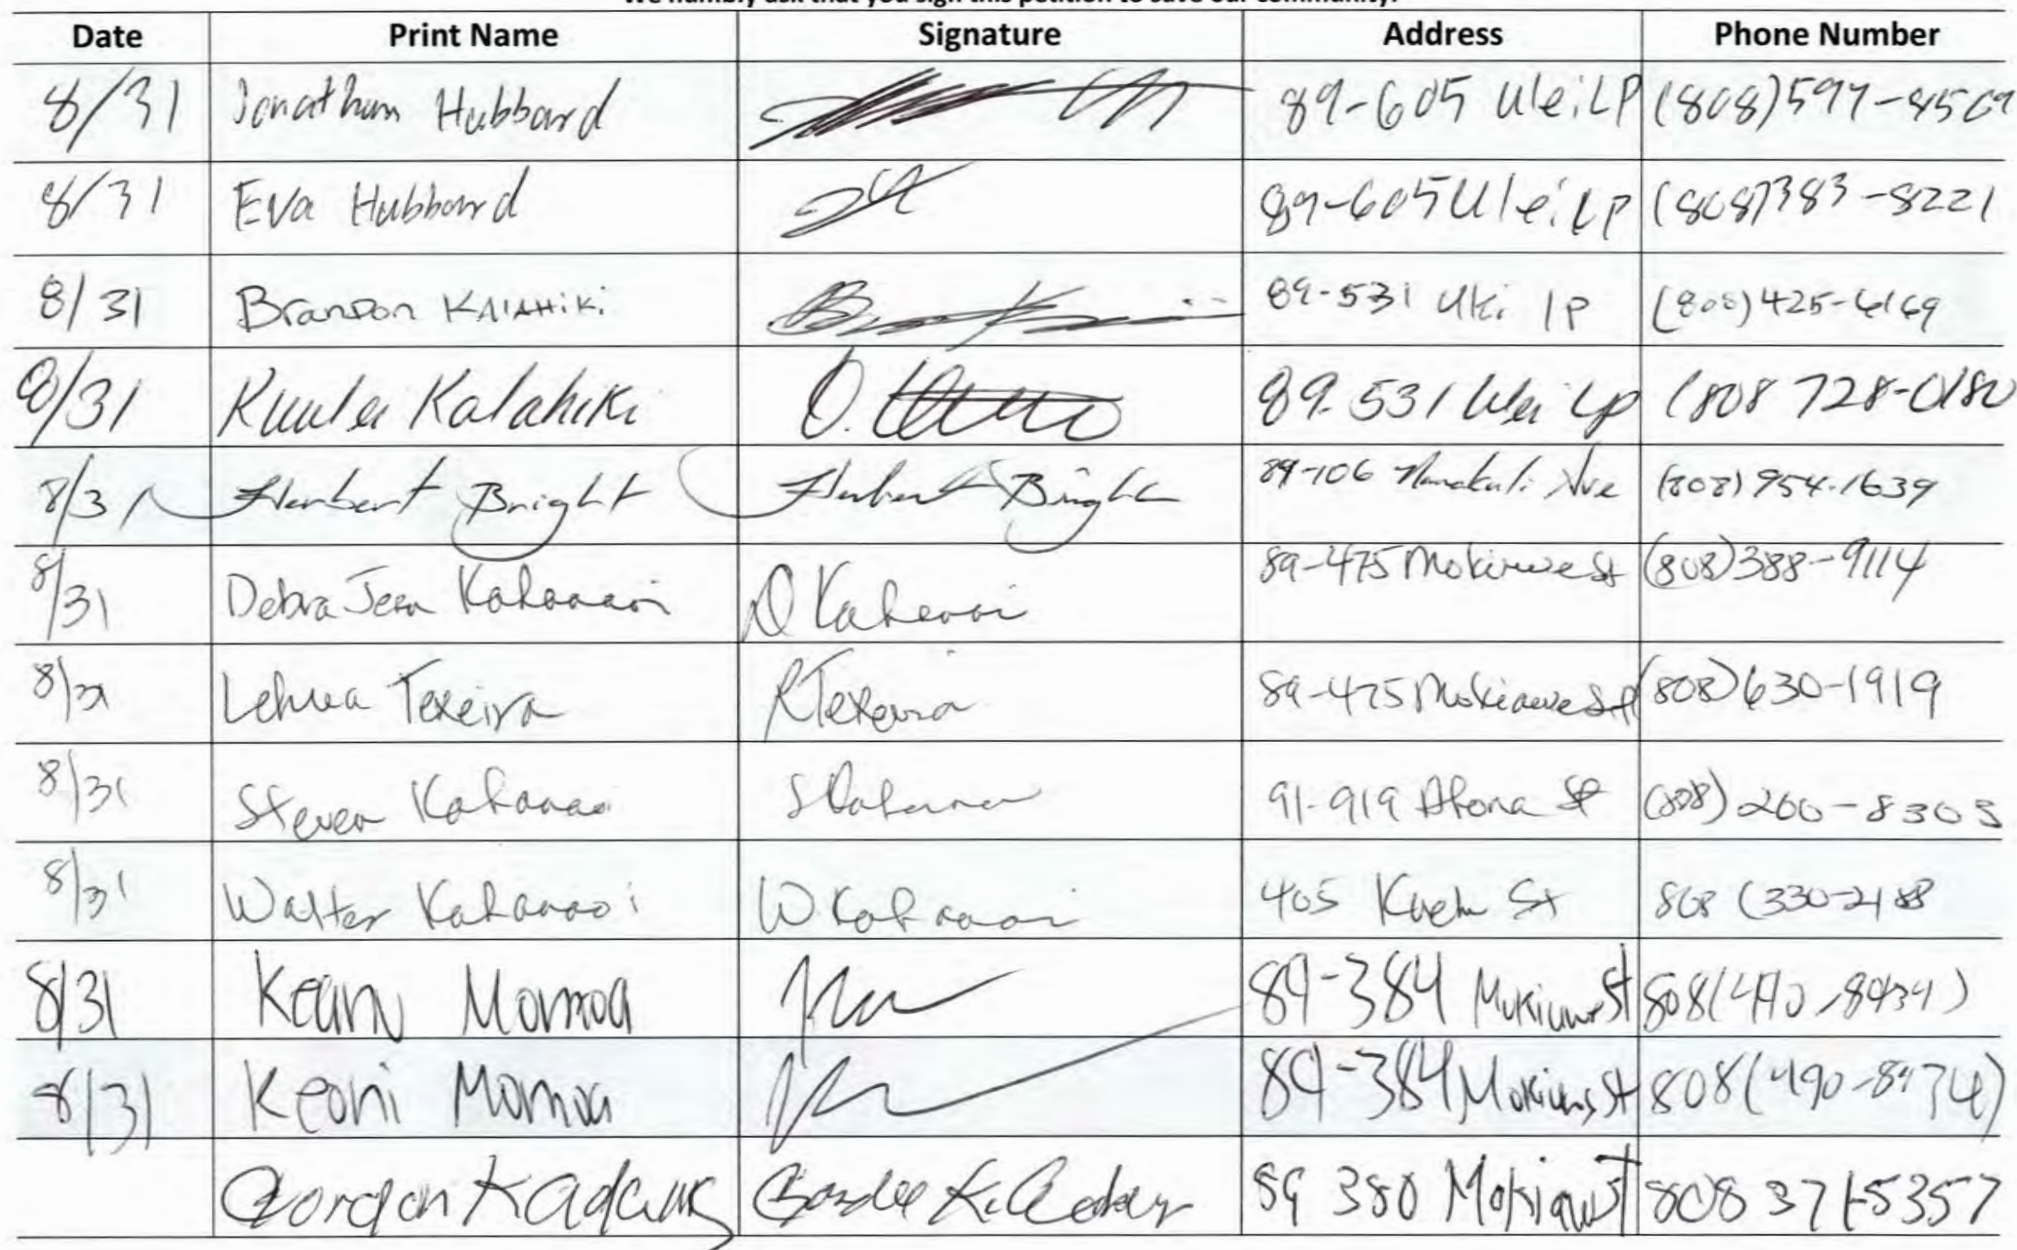 We humbly ask that you sign this petition to save our community.
Date Print Name Signature Address Phone Number
8/31 Jonathan Hubbard 89-605 Ulei LP (808)597-8509
8/31 Eva Hubbard 89-605 Ulei LP (808)383-8221
8/31 Brandon KALAHIKI 89-531 Uki lp (808)425-6169
8/31 Kuulei Kalahiki 89-531 Ulei Lp (808 728-0180
8/31 Herbert Bright Herbert Bright 89-106 Nanakuli Ave (808) 954-1639
8/31 Debra Jean Kahanaoi D Kahanaoi 89-475 Mokiawe St (808)388-9114
8/31 Lehua Texeira RTexeira 89-475 Mokiawe St (808)630-1919
8/31 Steven Kahanaoi 91-919 St (808) 200-8303
8/31 Walter Kahanaoi W Kahanaoi 405 St 808 (330-2188
8/31 Keanu Momoa 89-384 Mokiawe St 808(
8/31 Keoni Momoa 89-384 Mokiawe St 808(490-8934)
Gordon K Adams 89 380 Mokiawe ST 808 371-5357